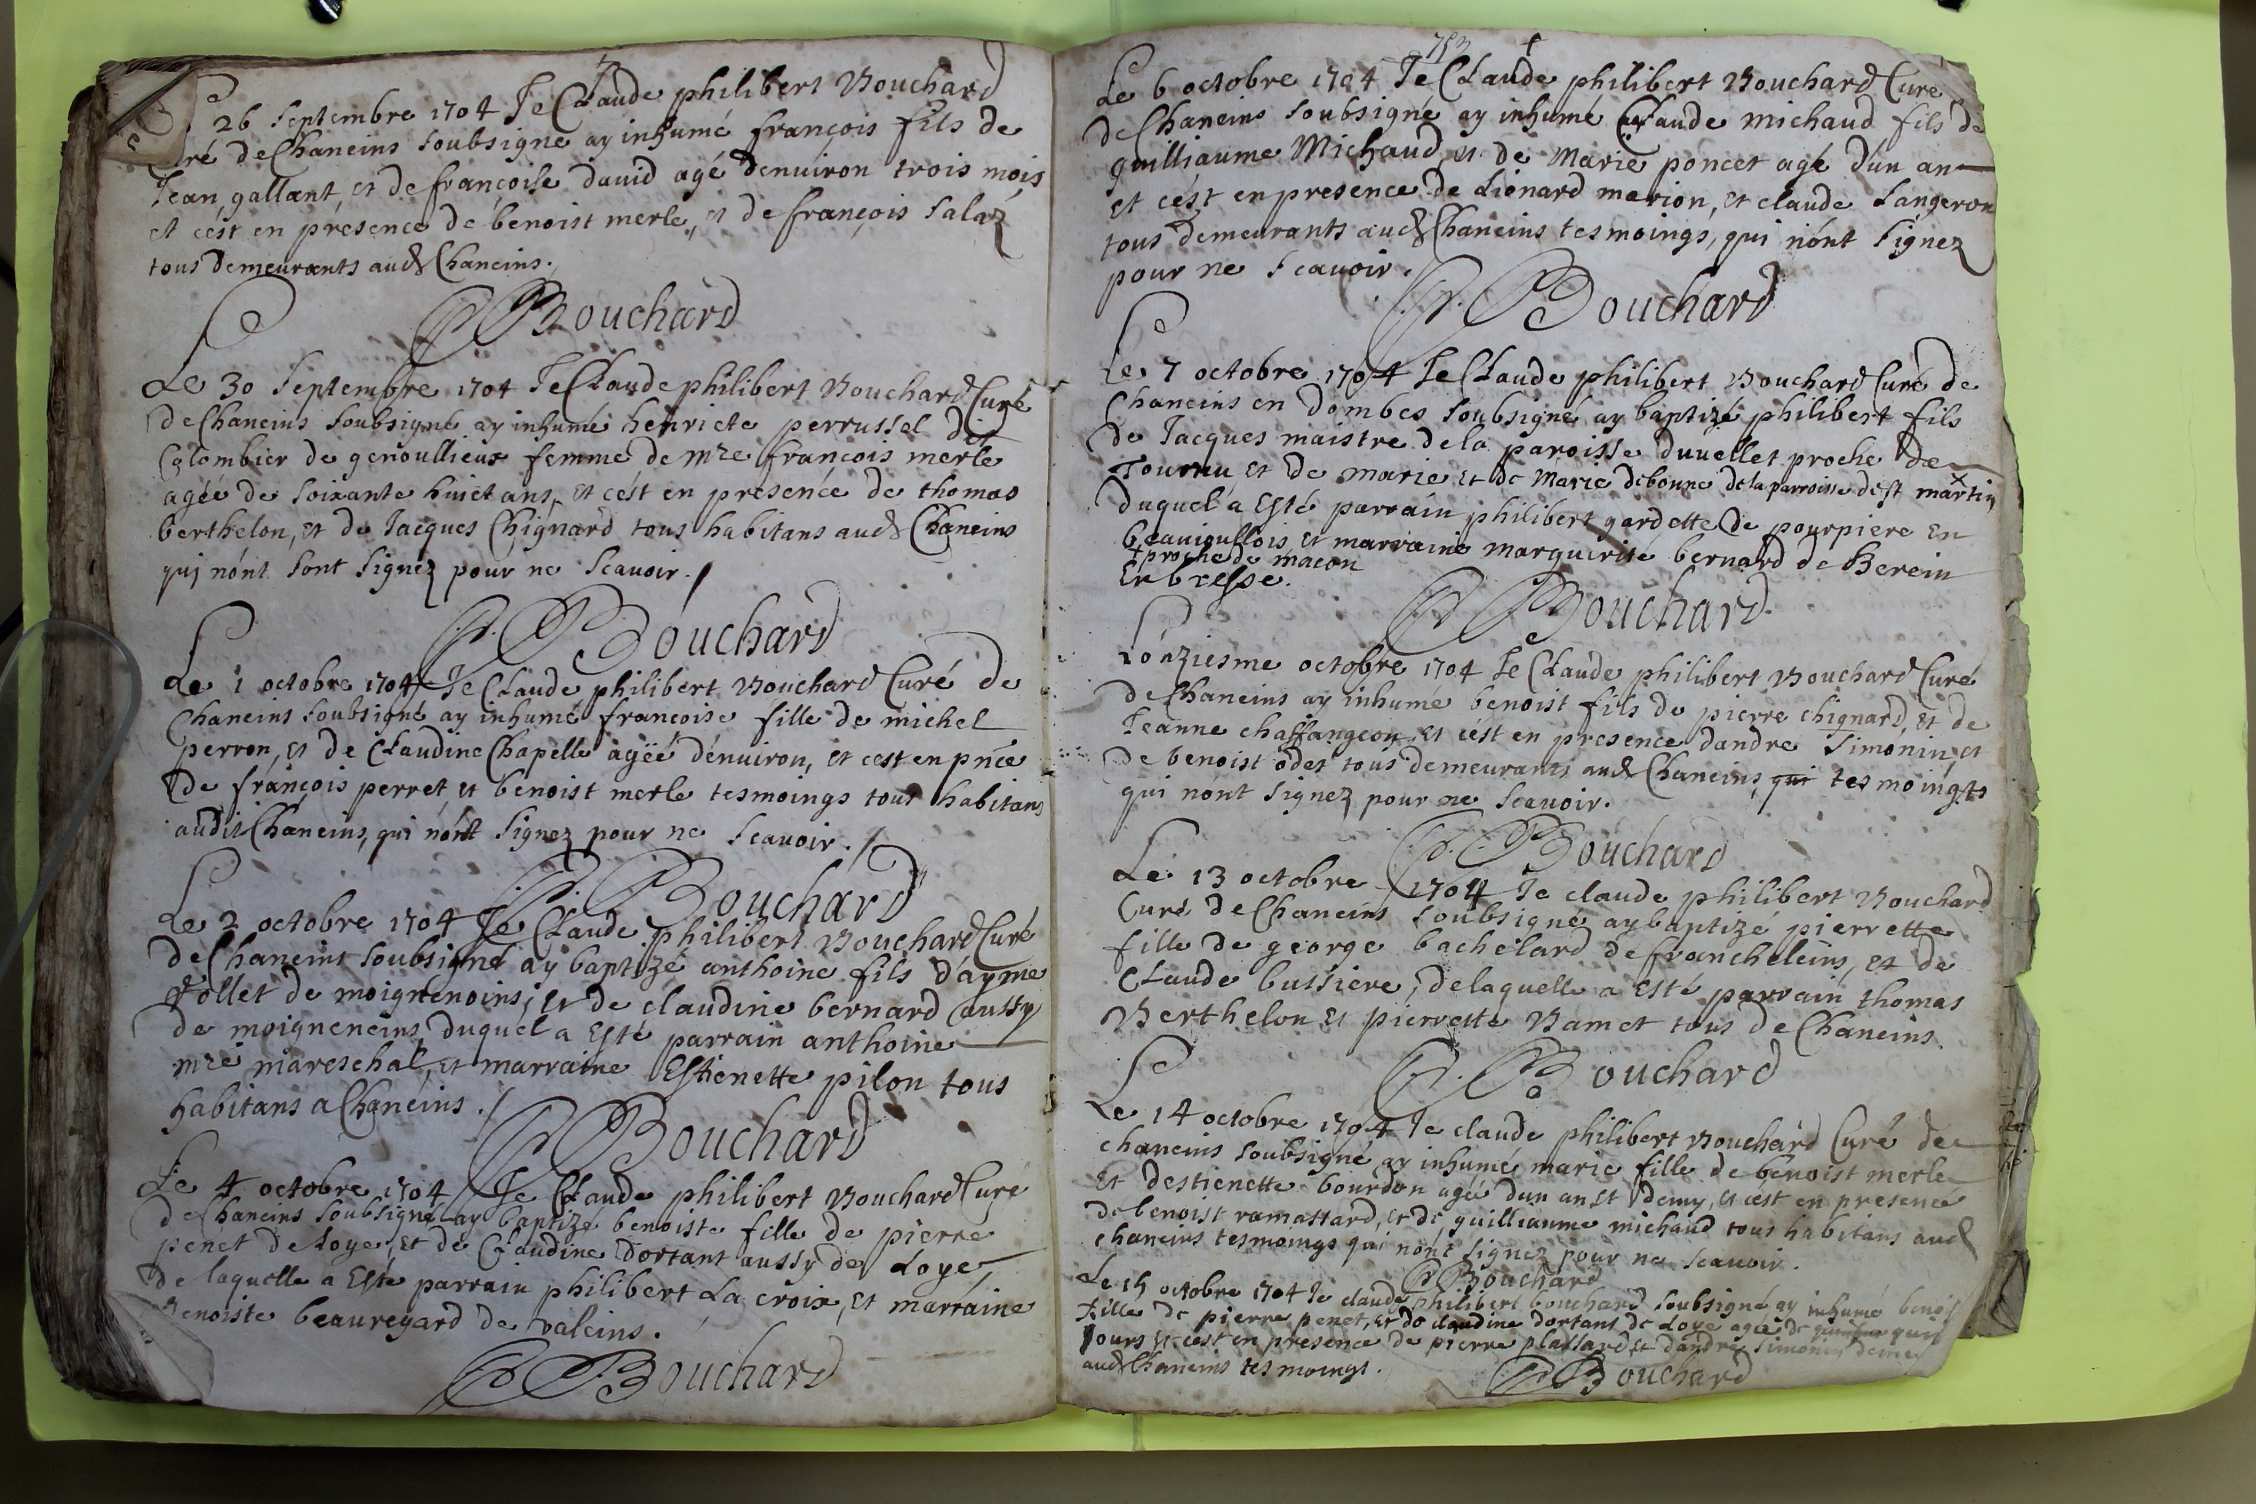 26 Septembre 1704 Je Claude philibert Bouchard
Curé de Chaneins soubsigné ay inhumé françois fils de
Jean gallant, et de françoise david agé denuiron trois mois
et cést en présence de benoist merle, et de françois
tous demeurants aud Chaneins.
Bouchard
Le 30 Septembre 1704 Je Claude philibert Bouchard Curé
de Chaneins soubsigné ay inhumé henriete perrussel dit
Colombier de genoullieux femme de mre françois merle
agéé de soixante huict ans, et cést en présence de thomas
berthelon, et de Jacques Chignard tous habitans aud Chaneins
qui nónt sont signez pour ne scauoir.
Bouchard
Le 1 octobre 1704 Je Claude philibert Bouchard Curé de
Chaneins soubsigné ay inhumé francoise fille de michel
perron, et de Claudine Chapelle agéé dénuiron, et cest en pnce
de françois perret, et benoist merle tesmoings tous habitans
audit Chaneins, qui nónt signez pour ne scauoir.
Bouchard
Le 2 octobre 1704 Je Claude philibert Bouchard Curé
de Chaneins soubsigné ay baptizé anthoine fils d'ayme
de moignenoins, et de claudine bernard aussy
de moigneneins, duquel a esté parrain anthoine
mre mareschal, et marraine Estienette pilon tous
habitans a Chaneins.
Bouchard
Le 4 octobre 1704 Je Claude philibert Bouchard Curé
de Chaneins soubsigné ay baptizé benoiste fille de pierre
penet de Loye, et de Claudine dortant aussy de Loye,
de laquelle a Esté parrain philibert La croix, et marraine
benoiste beauregard de valeins.
Bouchard
Le 6 octobre 1704 Je Claude philibert Bouchard Curé
de Chaneins soubsigné ay inhumé Claude michaud fils de
guilliaume Michaud, et de Marie poncet agé d'un an
et cést en presence de Lionard marion, et claude Langeron
tous demeurants aud Chaneins tesmoings, qui nónt signez
pour ne scauoir.
Bouchard
Le 7 octobre 1704 Je Claude philibert Bouchard Curé de
Chaneins en dombes soubsigné ay baptizé philibert fils
de Jacques maistre de la paroisse duuellet proche de
Tournu, et de marie et de Marie debonne de la parroisse de st martin
duquel a Esté parrain philibert gardette de pourpiere En
beauioullois, et marraine marguerite bernard de Berein
proche de macon
En bresse.
Bouchard
Lónziesme octobre 1704 Je Claude philibert Bouchard Curé
de Chaneins ay inhumé benoist fils de pierre chignard, et de
Jeanne chaffangeon, et cést en presence dandre Simonin, et
de benoist odet tous demeurants aud Chaneins, qui tesmoingts
qui nónt signez pour ne scauoir.
Bouchard
Le 13 octobre 1704 Je claude philibert Bouchard
Curé de Chaneins soubsigné ay baptizé pierrette
fille de george bachelard de francheleins, et de
Claude bussiere, de laquelle a Esté parrain thomas
Berthelon et pierrette Bamet tous de Chaneins.
Bouchard
Le 14 octobre 1704 Je claude philibert Bouchard Curé de
chaneins soubsigné ay inhumé marie fille de benoist merle
et destienette bourdon agéé dun an et demy, et cést en presence
de benoist ramassard, et de guilliaume michaud tous habitans aud
chaneins tesmoings qui nónt signez pour ne scauoir.
Bouchard
Le 15 octobre 1704 Je claude philibert bouchard soubsigné ay inhumé
fille de pierre penet, et de claudine dortant de Loye agéé de
Jours et cést en presence de pierre plassard, et dandre Simonin
aud Chaneins tesmoings.
Bouchard